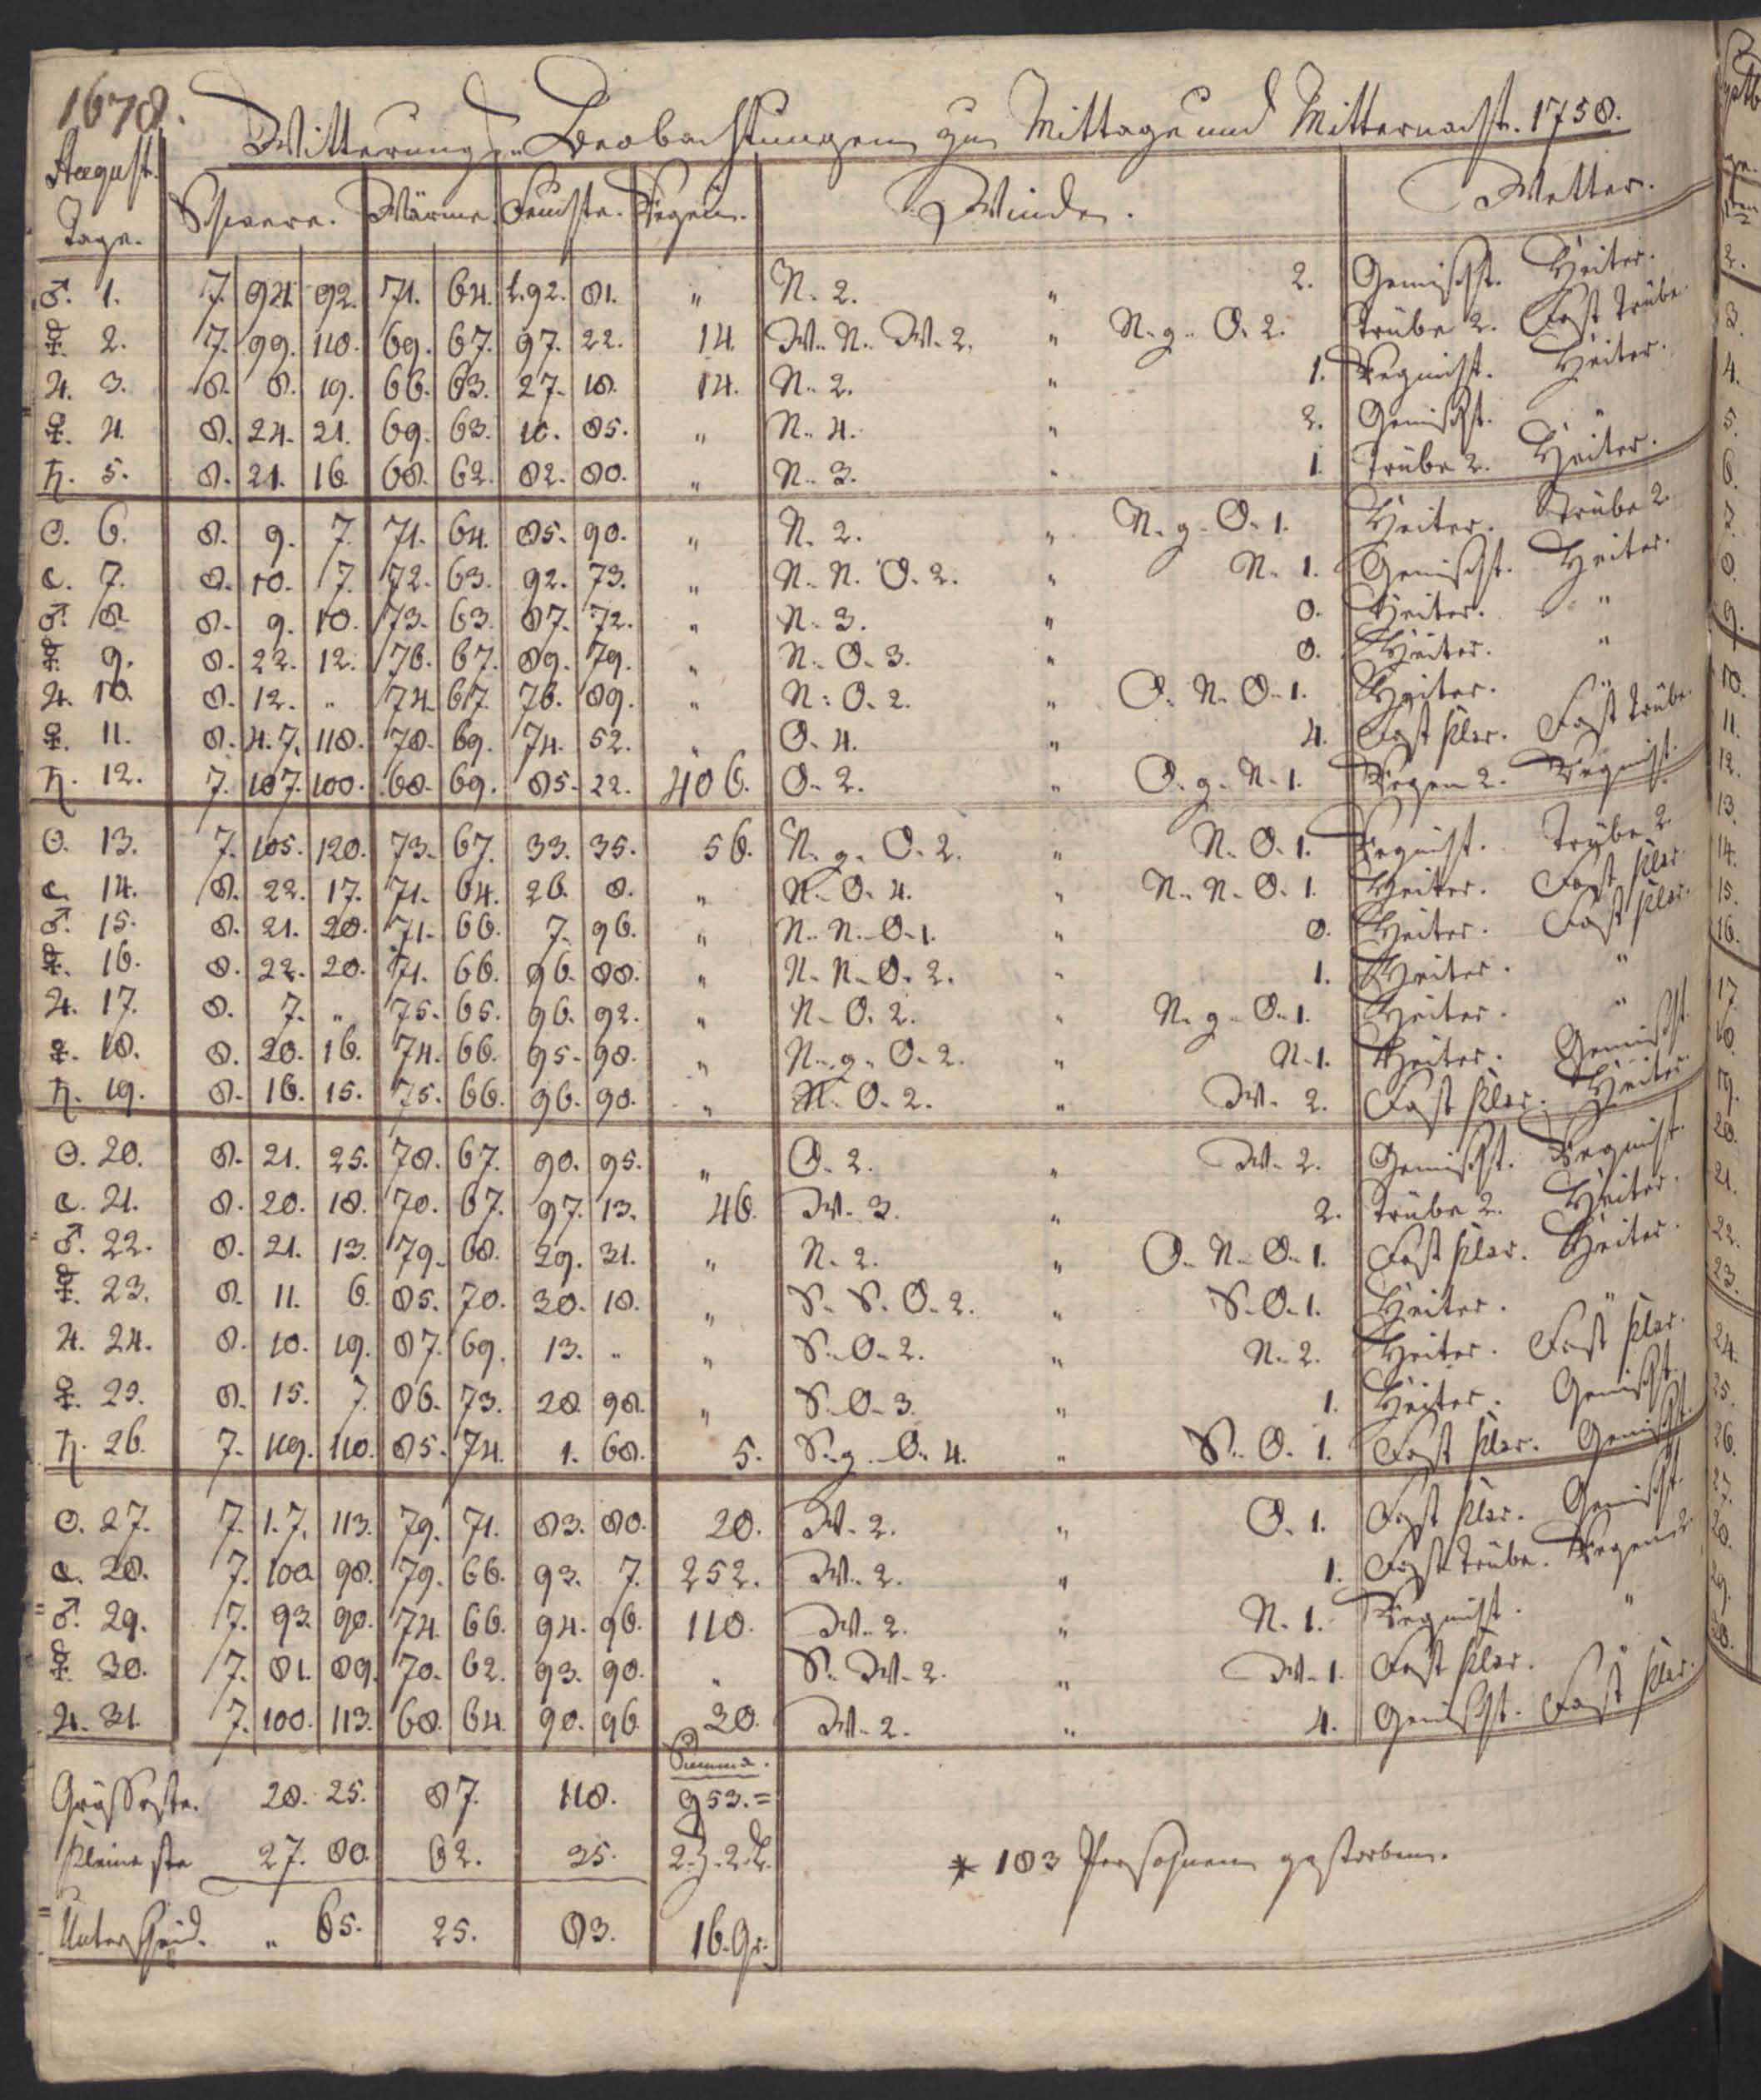 1678.
Witterungs-Beobachtungen zu Mittage und Mitternacht. 1758.
August. Tage. Schwere. Wärme. Feuchte. Regen. Winde. Wetter.
♂. 1. 7. 94. 92. 71. 64. 1.92. 81. " N. 2. " 2. Gemischt. Heiter.
☿. 2. 7. 99. 110. 69. 67. 97. 22. 14. W. N. W. 2. " N. g. O. 2. Trübe 2. Fast Trübe.
♃. 3. 8. 8. 19. 66. 63. 27. 18. 14. N. 2. " 1. Regnicht. Heiter.
♀. 4. 8. 24. 21. 69. 63. 10. 85. " N. 4. " 2. Gemischt. "
♄. 5. 8. 21. 16. 68. 62. 82. 80. " N. 3. " 1. Trübe 2. Heiter.
☉. 6. 8. 9. 7. 71. 64. 85. 90. " N. 2. " N. g. O. 1. Heiter. Trübe 2.
☾. 7. 8. 10. 7. 72. 63. 92. 73. " N. N. O. 2. " N. 1. Gemischt. Heiter.
♂. 8. 8. 9. 10. 73. 63. 87. 72. " N. 3. " 0. Heiter. "
☿. 9. 8. 22. 12. 76. 67. 89. 79. " N. O. 3. " 0. Heiter. "
♃. 10. 8. 12. " 74. 67. 76. 89. " N. O. 2. " O. N. O. 1. Heiter. "
♀. 11. 8. 4. 7. 118. 78. 69. 74. 52. " O. 4. " 4. Fast klar. Fast Trübe.
♄. 12. 7. 107. 100. 68. 69. 85. 22. 406. O. 2. " O. g. N. 1. Regen 2. Regnicht.
☉. 13. 7. 105. 120. 73. 67. 33. 35. 56. N. g. O. 2. " N. O. 1. Regnicht. Trübe 2.
☾. 14. 8. 22. 17. 71. 64. 26. 8. " N. O. 4. " N. N. O. 1. Heiter. Fast klar.
♂. 15. 8. 21. 20. 71. 66. 7. 96. " N. N. O. 1. " 0. Heiter. Fast klar.
☿. 16. 8. 22. 20. 71. 66. 96. 88. " N. N. O. 2. " 1. Heiter. "
♃. 17. 8. 7. " 75. 65. 96. 92. " N. O. 2. " N. g. O. 1. Heiter. "
♀. 18. 8. 20. 16. 74. 66. 95. 98. " N. g. O. 2. " N. 1. Heiter. Gemischt.
♄. 19. 8. 16. 15. 75. 66. 96. 98. " N. O. 2. " W. 2. Fast klar. Heiter.
☉. 20. 8. 21. 25. 78. 67. 90. 95. " O. 2. " W. 2. Gemischt. Regnicht.
☾. 21. 8. 20. 18. 70. 67. 97. 13. 46. W. 3. " 2. Trübe 2. Heiter.
♂. 22. 8. 21. 13. 79. 68. 29. 31. " N. 2. " O. N. O. 1. Fast klar. Heiter.
☿. 23. 8. 11. 6. 85. 70. 30. 18. " S. S. O. 2. " S. O. 1. Heiter. "
♃. 24. 8. 10. 19. 87. 69. 13. " " S. O. 2. " N. 2. Heiter. Fast klar.
♀. 25. 8. 15. 7. 86. 73. 28. 98. " S. O. 3. " 1. Heiter. Gemischt.
♄. 26. 7. 119. 110. 85. 74. 1. 68. 5. S. g. O. 4. " S. O. 1. Fast klar. Gemischt.
☉. 27. 7. 1.7. 113. 79. 71. 83. 80. 20. W. 2. " O. 1. Fast klar. Gemischt.
☾. 28. 7. 100. 98. 79. 66. 93. 7. 252. W. 2. " 1. Fast Trübe. Regen 2.
♂. 29. 7. 93. 90. 74. 66. 94. 96. 110. W. 2. " N. 1. Regnicht. "
☿. 30. 7. 81. 89. 70. 62. 93. 90. " S. W. 2. " W. 1. Fast klar. "
♃. 31. 7. 100. 113. 68. 64. 90. 96. 30. W. 2. " 4. Gemischt. Fast klar.
Summa.
Grösseste. 28. 25. 87. 118. 953.=
Kleineste 27. 80. 62. 35.
* 183 Persohnen gestorben.
Unterscheid. " 65. 25. 83. 16. Gr.